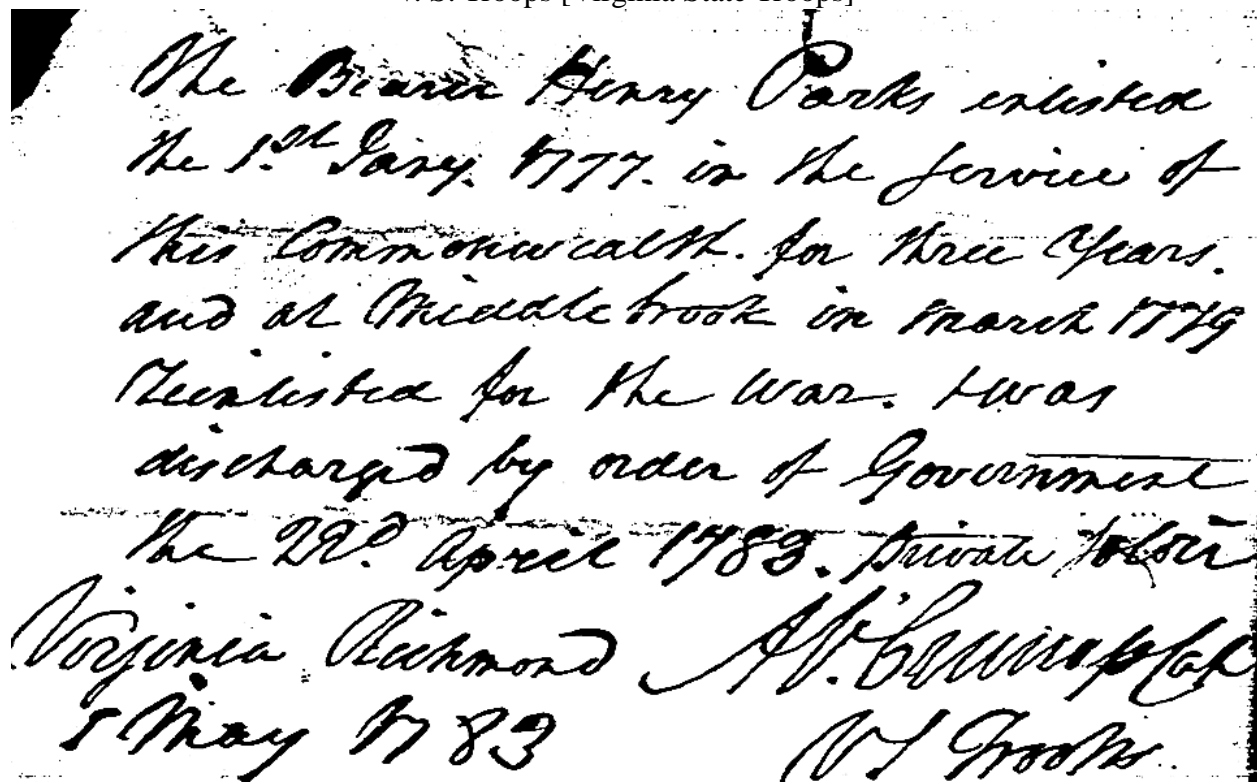 V. S. Troops [Virginia State Troops]
The Bearer Henry Parks enlisted
the 1.st Jany. 1777. in the Service of
this Commonwealth. for three Years.
and at Middlebrook in March 1779
Reinlisted for the war. & was
discharg'd by order of Government
the 22d. April 1783. Private
Virginia Richmond A W. Crump Cap
May 1783 V S Troops